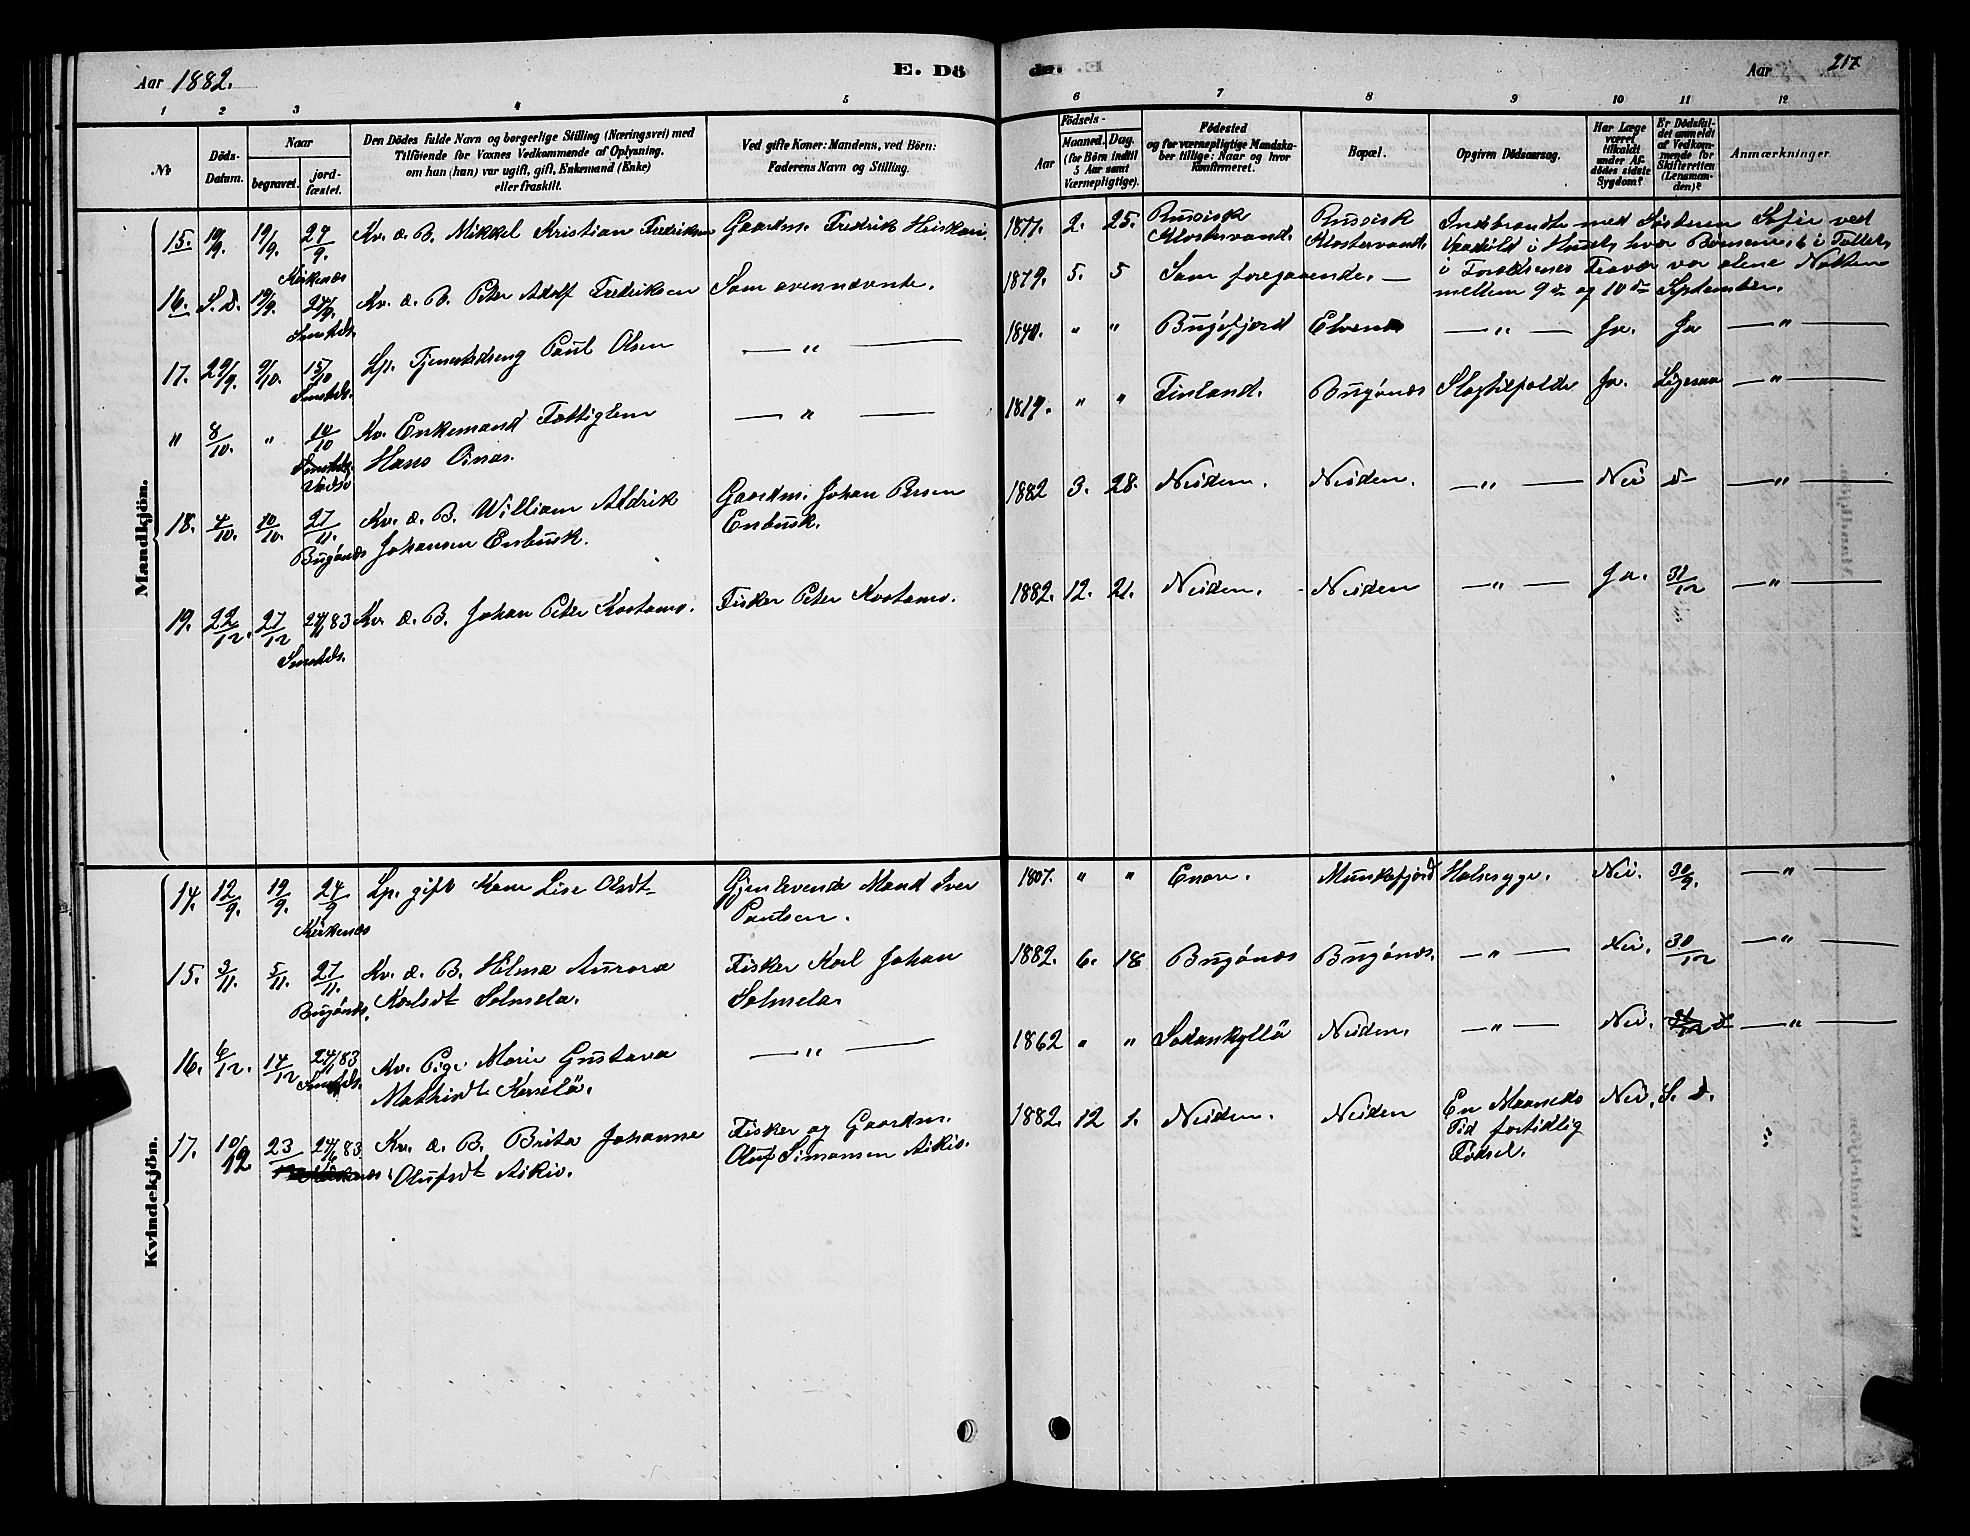 Aar 1882. E. Dö de. Aar 217
1 2 3 4 5 6 7 8 9 10 11 12
No
Döds-
Datum.
Naar
begravet.
jord-
fæstet.
Den Dödes fulde Navn og borgerlige Stilling (Næringsvei) med
Tilföiende for Voxnes Vedkommende af Oplysning,
om han (hun) var ugift, gift, Enkemand (Enke)
eller fraskilt.
Ved gifte Koner: Mandens, ved Börn:
Faderens Navn og Stilling.
Födsels-
Aar
Maaned. Dag.
(for Börn indtil
5 Aar samt
Værnepligtige).
Födested
og for værnepligtige Mandska-
ber tillige: Naar og hvor
konfirmeret.
Bopæl.
Opgiven Dödsaarsag.
Har Læge
været
tilkaldt
under Af-
dödes sidste
Sygdom?
Er Dödsfal-
det anmeldt
af Vedkom-
mende for
Skifteretten
(Lensman-
den)?
Anmærkninger
Mandkjön.
15. 10/9. 19/9. 24/9. Kirkenæs Kv. æ. B. Mikkel Kristian Fredriksen Gaardm. Fredrik Heiskari. 1877. 2. 25. Russisk Klostervand. Russisk Klostervand. Indebrændte med Søsteren Sofie ved
Vaadild i Huset, hvor Børnene i Tallet
16. S. D. 19/9. 24/9. Smstds. Kv. æ. B. Peter Adolf Fredriksen Som ovennævnte. 1879. 5. 5 Som foregaaende. — i Forældrenes Fravær var alene Natten
mellem 9de og 10de September.
17. 29/9. 9/10. 15/10 Smstds. Lp. Tjenestedreng Paul Olsen — " — 1840. " " Bugøfjord Elvenæs — " — Ja. Ja — " —
" 8/10. " 14/10 Smstds. Vadsø Kv. Enkemand Fattiglem
Hans Oinas. — " — 1819. " " Finland. Bugønæs Slagtilfælde Ja. Ligesaa — " —
18. 4/10. 10/10. 27/11. Bugønæs Kv. æ. B. William Aldrik
Johansen Enbusk. Gaardm. Johan Persen
Enbusk. 1882 3. 28. Neiden. Neiden. — " — Nei — " —
19. 22/12. 27/12 83 Smstds. Kv. æ. B. Johan Peter Kostamo. Fisker Peter Kostamo. 1882. 12. 21. Neiden. Neiden — " — Ja. 31/12 — " —
Kvindekjön.
14. 12/9. 19/9. 24/9 Kirkenæs Lp. gift Kone Lise Olsdt Gjenlevende Mand Iver
Paulsen. 1807. " " Enare. Munkefjord Halssyge. Nei. 30/9. — " —
15. 3/11. 5/11. 27/11. Bugønæs. Kv. æ. B. Helma Aurora
Karlsdt Salmela. Fisker Karl Johan
Salmela. 1882. 6. 18 Bugønæs Bugønæs. — " — Nei. 30/12 — " —
16. 6/12. 14/12 83 Smstds. Kv. Pige Marie Gustava
Mathisdt Kesselä. — " — 1862 " " Sodankyllä Neiden. — " — Nei. — " —
17. 10/12 23 24/6 83 Kv. æ. B. Brita Johanne
Olufsdt Aikio. Fisker og Gaardm.
Oluf Simonsen Aikio. 1882. 12 1. Neiden. Neiden En Maaneds
Tid fortidlig
Fødsel. Nei. S. D. "